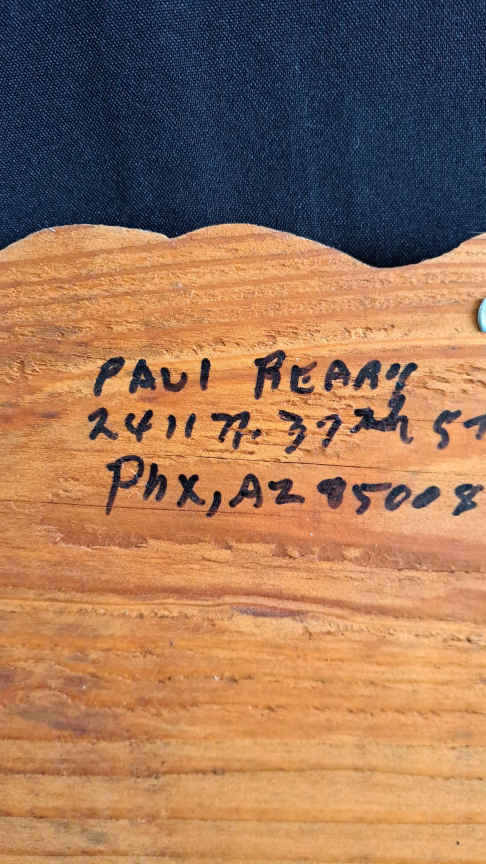 PAUL REARY
2411 N. 37th ST
Phx, AZ 85008